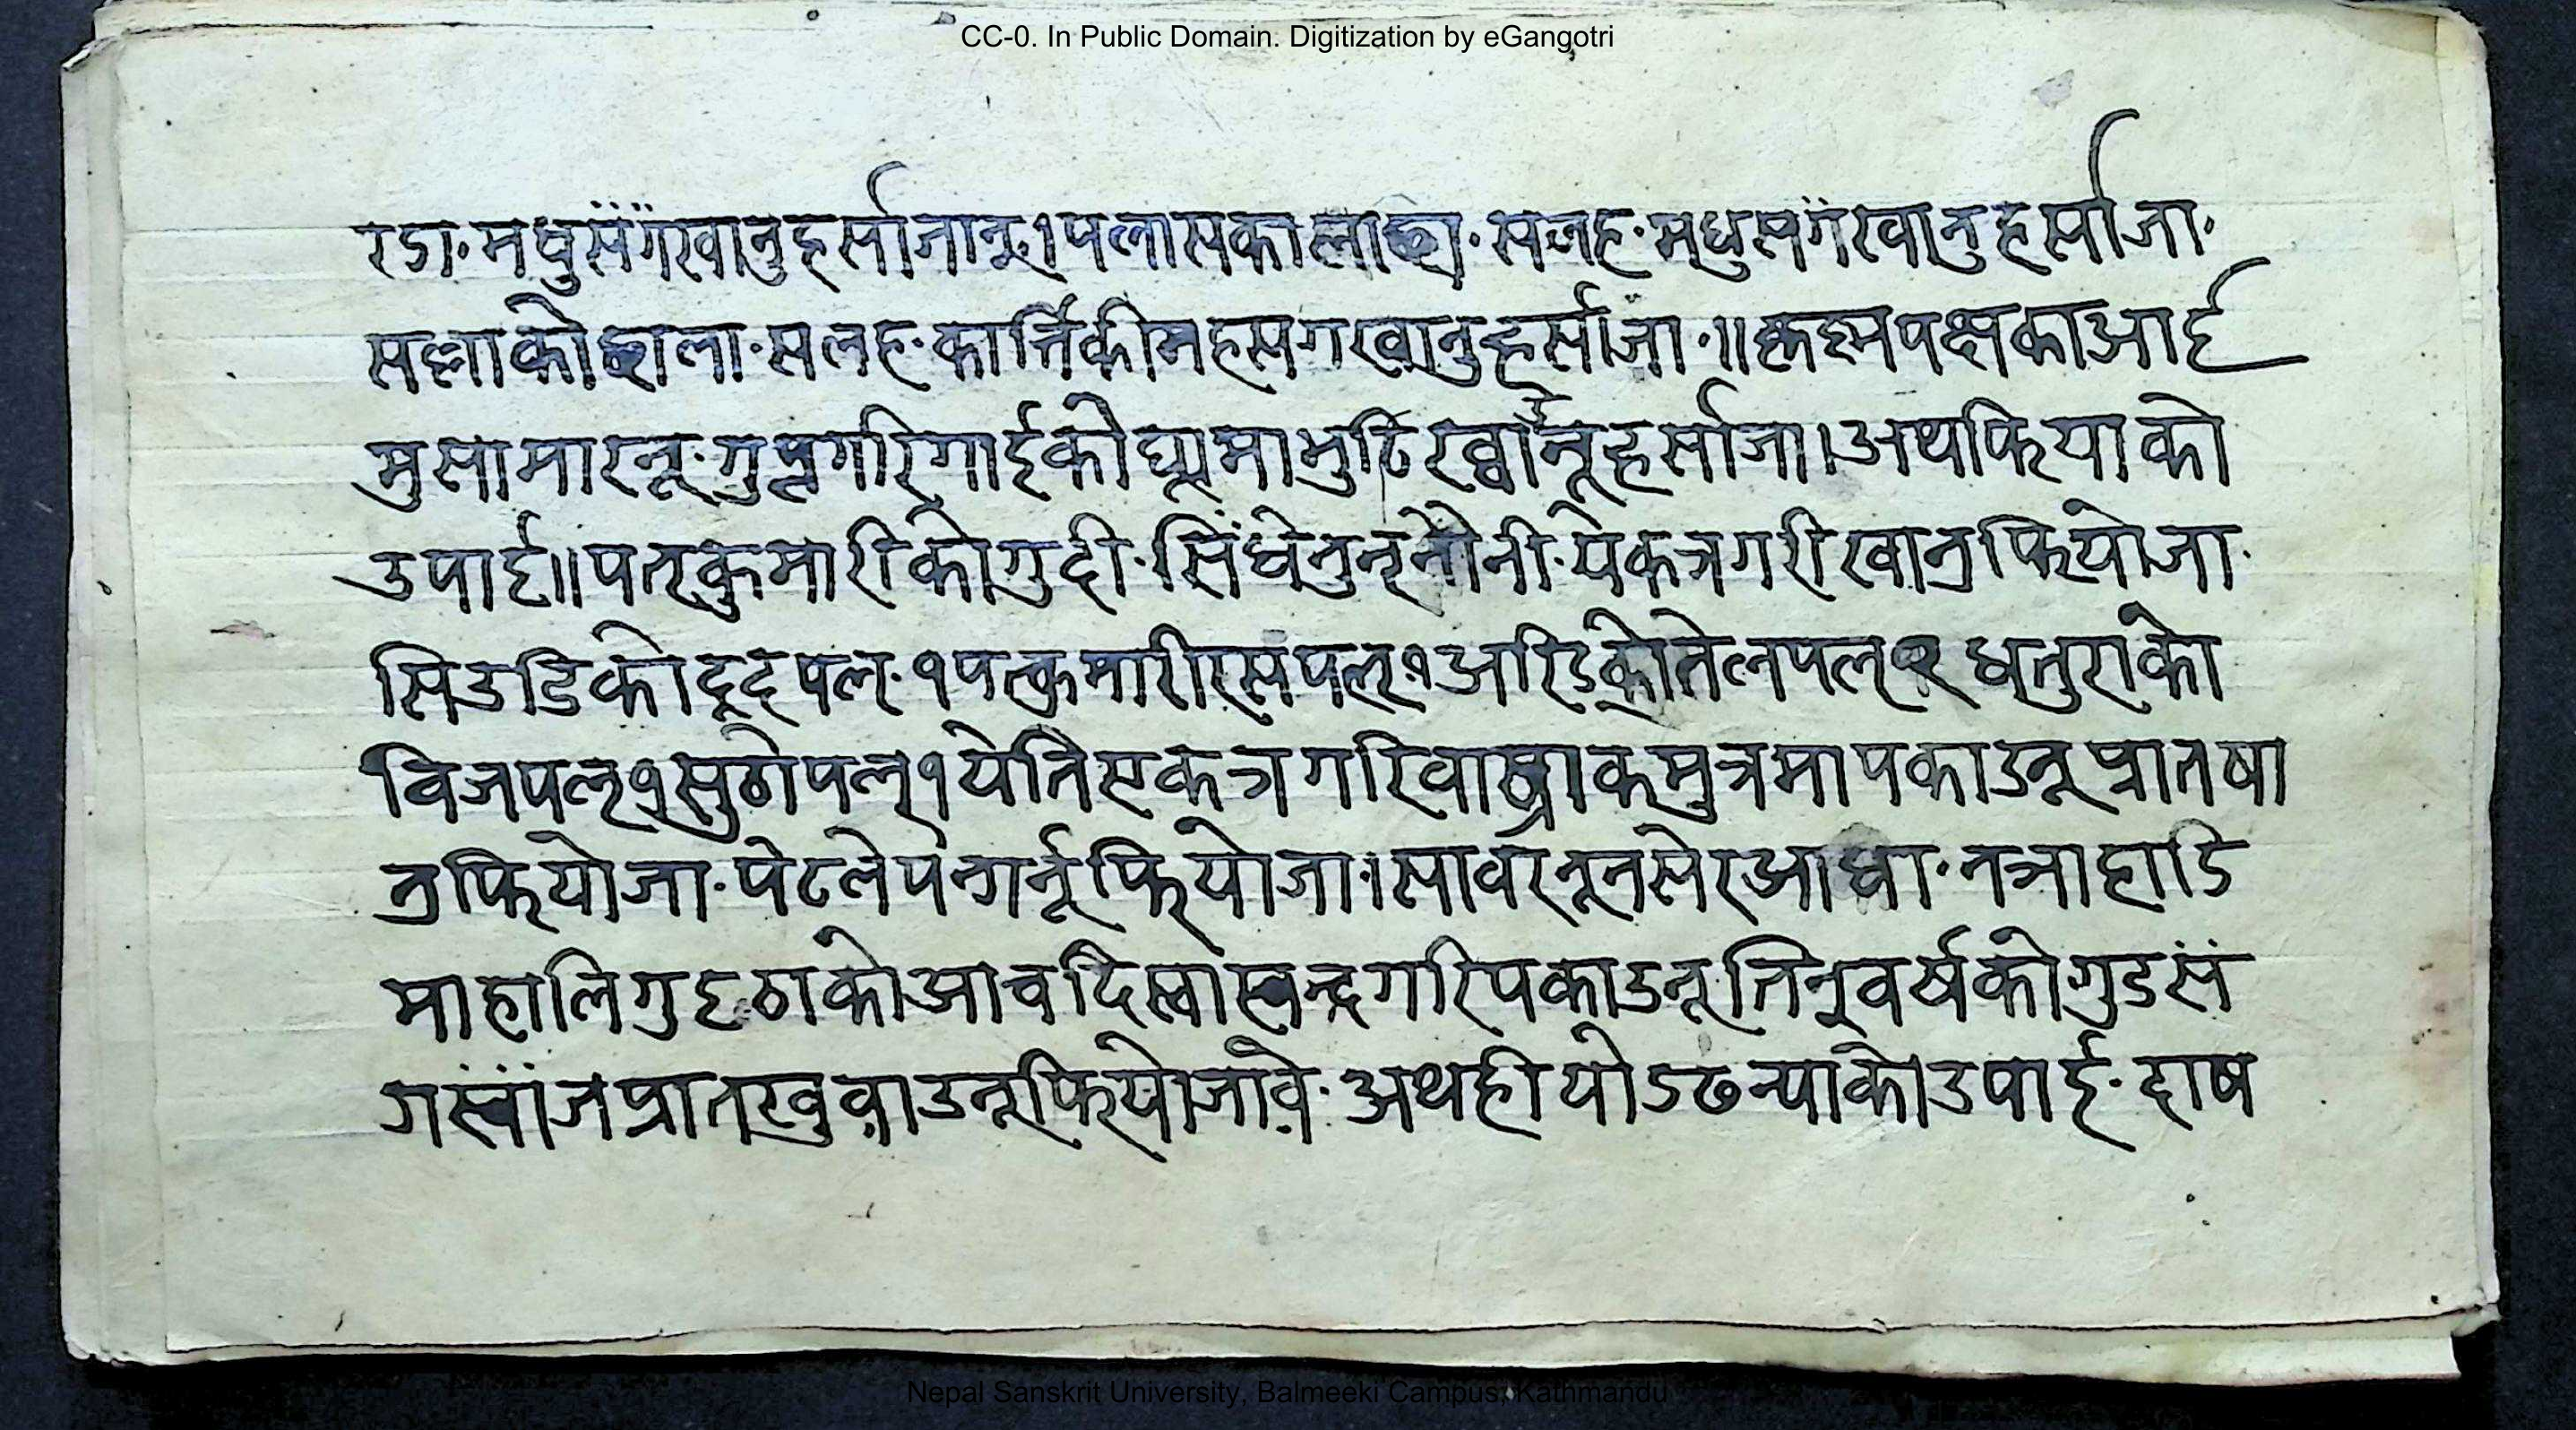 CC-0. In Public Domain. Digitization by eGangotri
रडा· मधुसँगँखानु हर्सा जानू। पलासका लाहा· सलह· मधुसगँ खानु हर्सा जा·
सल्लाको छाला· सलह· कार्त्तिकी मह सग खानु हर्सा जा·॥ कृष्मपक्षका आई
मुसा मारनू· गुप्नगरि गाईको घ्यूमा भुटि ख्वानू हर्सा जा। अथ फियाको
उपाई॥ पत्कुमारीको गुदी· सिंधेनुन् नौनी· येकत्र गरी खान्र फियो जा·
सिउडिको दूद पल· १ पत्कुमारी रस पल् १ अरिडको तेल पल् २ धतुराको
विज पल् १ सुठो पल् १ येति एकत्र गरि वाख्राक मुत्रमा पकाउनू प्रात षा
न्र फियो जा· पेट लेपन गर्नू फियो जा।सावर नून सेर आधा· नत्रा हाडि
मा हालि गुइठाको आच दि स्वास् वन्द गरि पकाउनू· तिन् वर्षको गुड सँ
ग स्वाँज प्रात खुवाउनू फियो जावे· अथ हीयो डढन्याको उपाई· दाष
Nepal Sanskrit University, Balmeeki Campus, Kathmandu